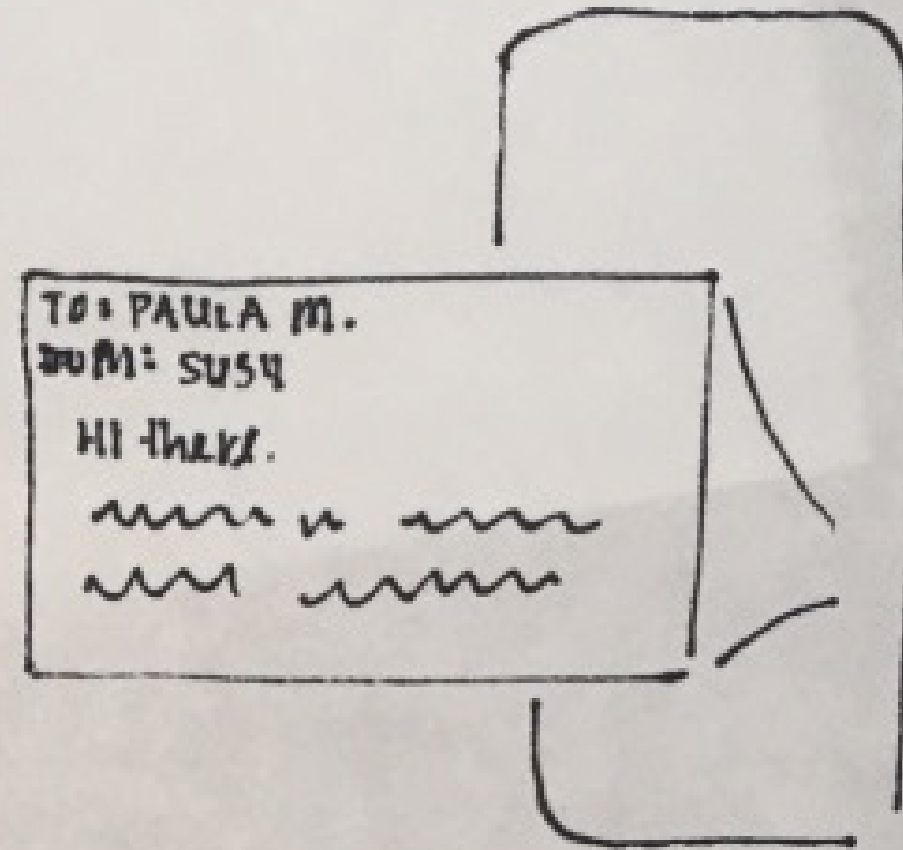 TO: PAULA M.
SUSY
Hi there.